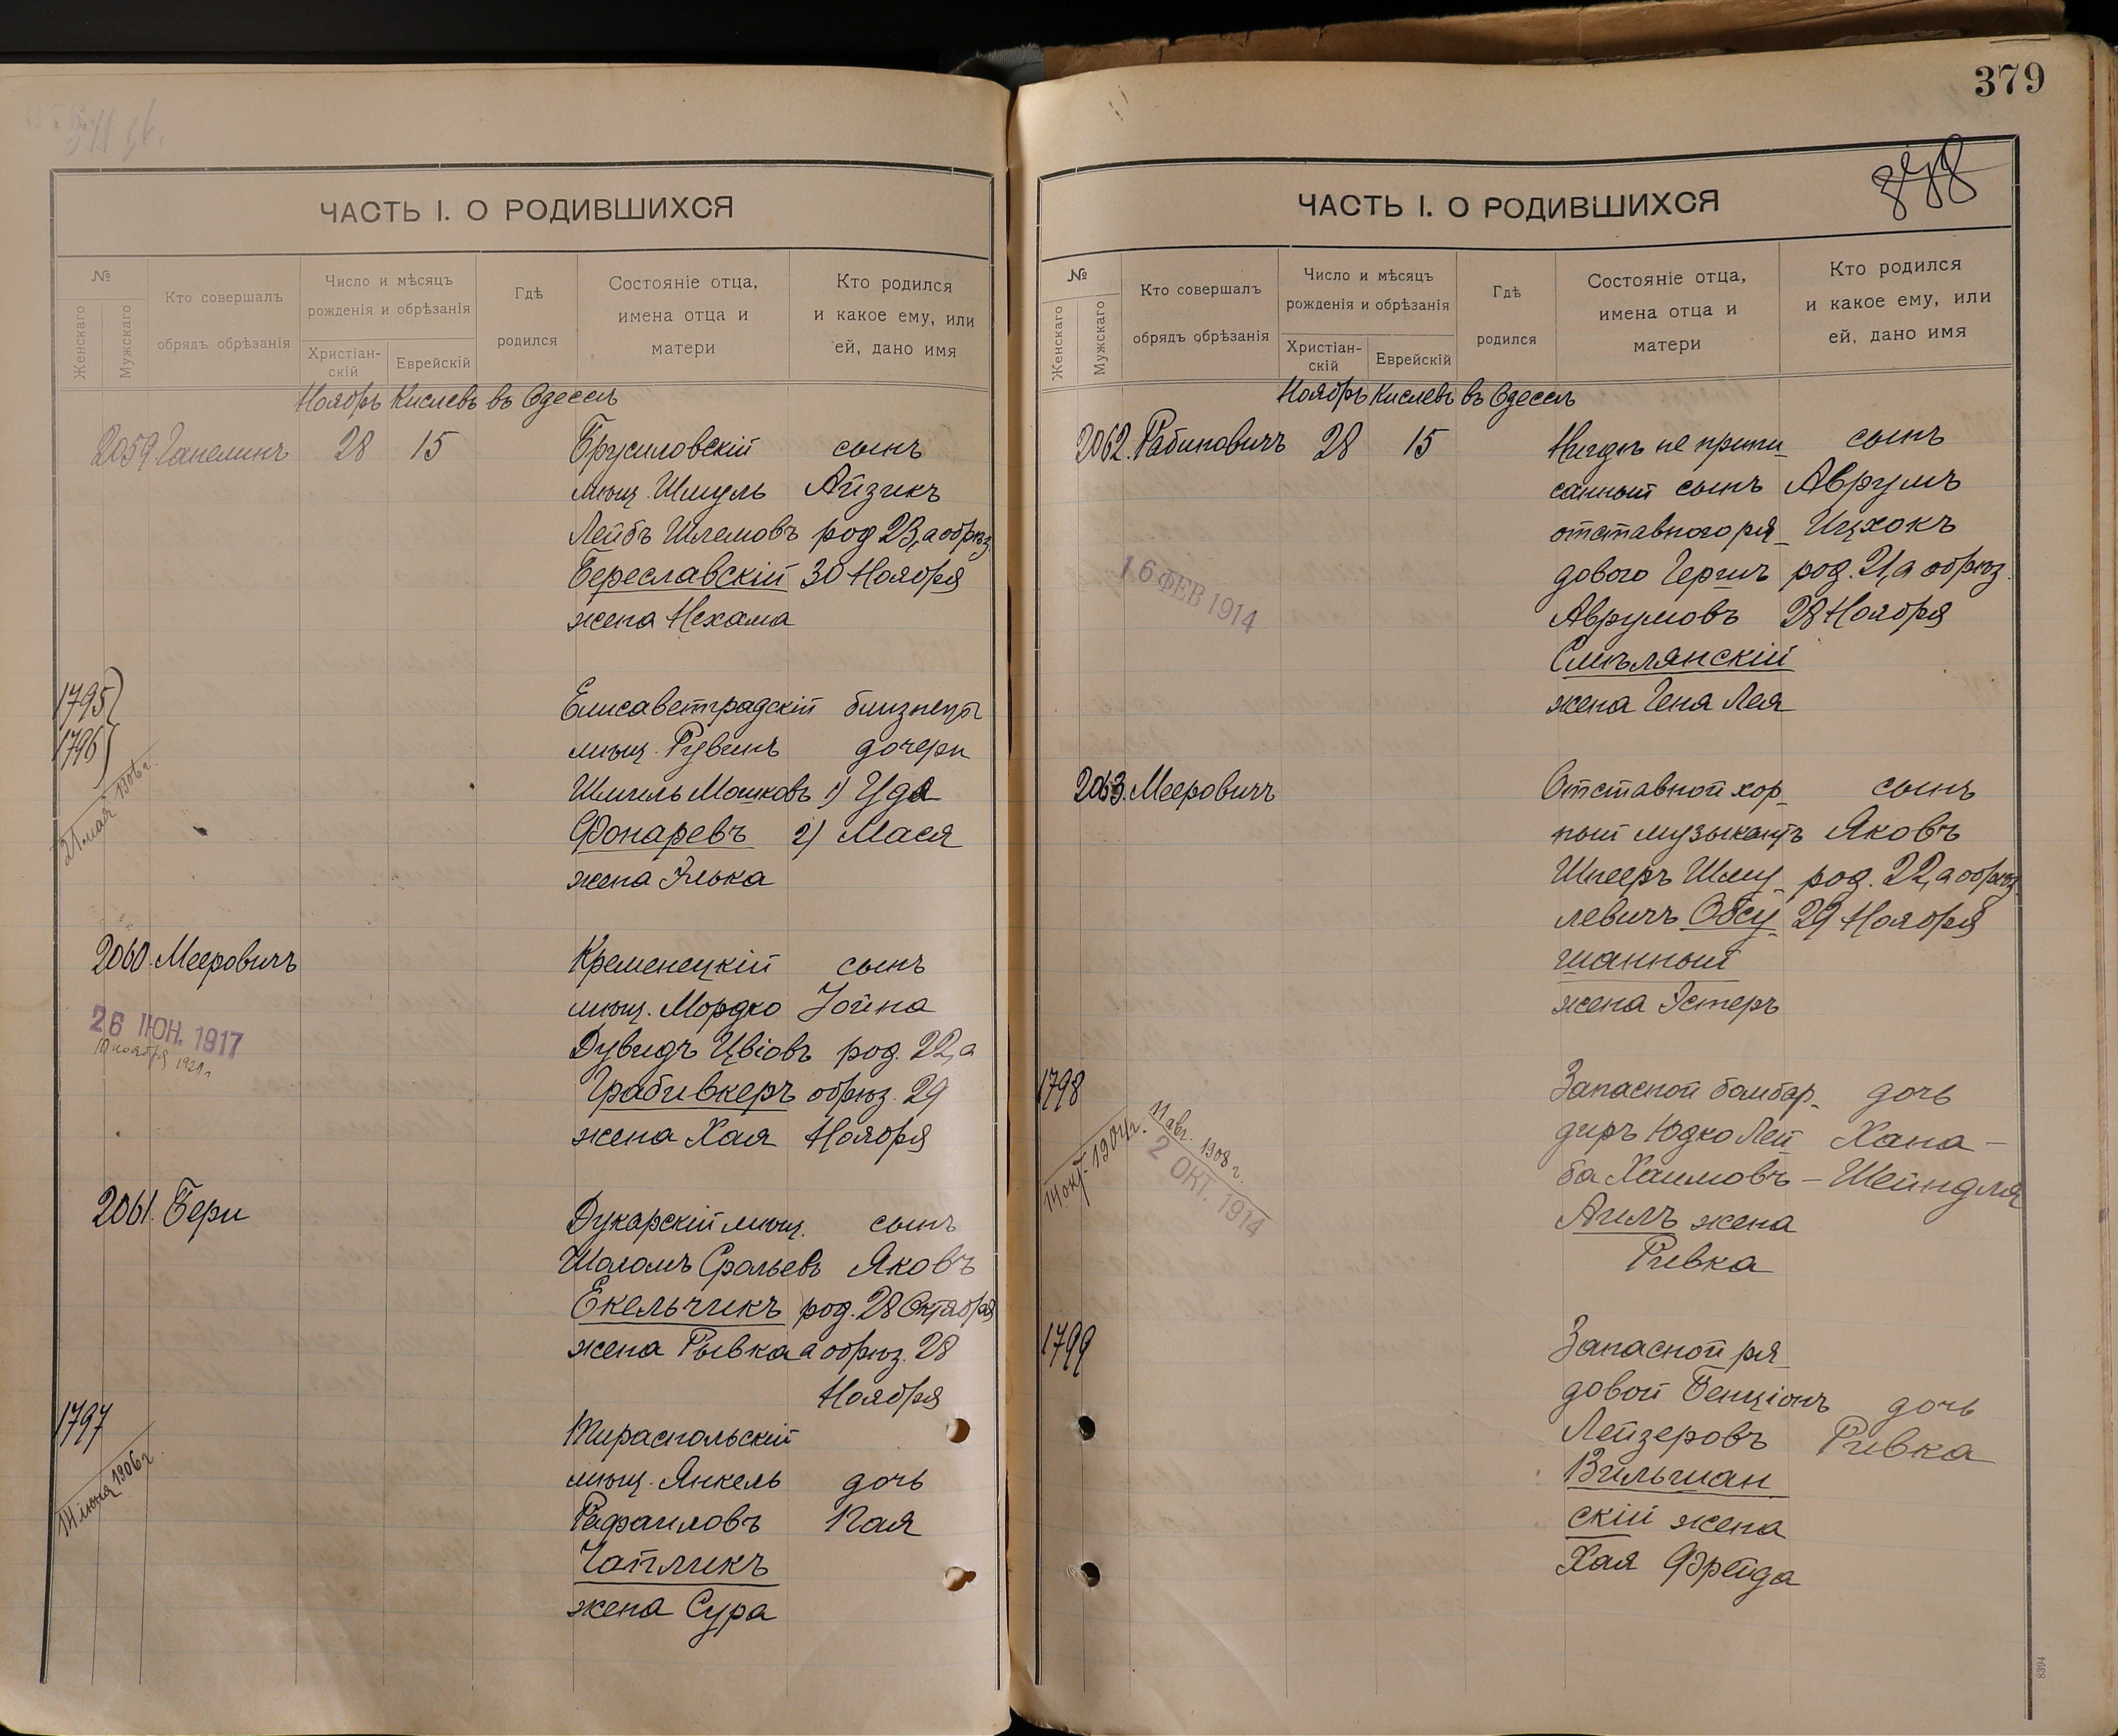 379
ЧАСТЬ I. О РОДИВШИХСЯ
№
Женскаго
Мужскаго
Кто совершалъ
обрядъ обрѣзанія
Число и мѣсяцъ
рожденія и обрѣзанія
Христіан-
скій
Еврейскій
Гдѣ
родился
Состояніе отца,
имена отца и
матери
Кто родился
и какое ему, или
ей, дано имя
Ноябрь Кислевъ въ Одессѣ
2059. Галелинъ 28 15 Брусиловскій сынъ
мѣщ. Шмуль Айзикъ
Лейбъ Шлемовъ род 23, а обрѣз.
Береславскій 30 Ноября
жена Нехама
1795
1796
21 мая 1906 г.
Елисаветградскій близнецы
мѣщ. Рувинъ дочери
Шмиль Мошковъ 1) Уда
Фонаревъ 2) Мася
жена Элька
2060. Мееровичъ Кременецкій сынъ
мѣщ. Мордко Іойна
26 ІЮН. 1917
10 ноября 1921 г
Дувидъ Цвіовъ род. 22, а
Грабивкеръ обрѣз. 29
жена Хая Ноября
2061. Бери Дукарскій мѣщ. сынъ
Шоломъ Срольевъ Яковъ
Екельчикъ род. 28 Октября
жена Рывка а обрѣз. 28
Ноября
1797 Тираспольскій
14 іюня 1906 г.
мѣщ. Янкель дочь
Рафаиловъ Пая
Чапликъ
жена Сура
ЧАСТЬ I. О РОДИВШИХСЯ
378
№
Женскаго
Мужскаго
Кто совершалъ
обрядъ обрѣзанія
Число и мѣсяцъ
рожденія и обрѣзанія
Христіан-
скій
Еврейскій
Гдѣ
родился
Состояніе отца,
имена отца и
матери
Кто родился
и какое ему, или
ей, дано имя
Ноябрь Кислевъ въ Одессѣ
2062. Рабиновичъ 28 15 Нигдѣ не припи- сынъ
санный сынъ Аврумъ
отставного ря- Ицхокъ
16 ФЕВ 1914
дового Гершъ род. 21, а обрѣз.
Аврумовъ 28 Ноября
Смѣлянскій
жена Геня Лея
2063. Мееровичъ Отставной хор- сынъ
ный музыкантъ Яковъ
Шнееръ Шму- род. 22, а обрѣз
левичъ Обсу- 29 Ноября
жена Эстеръ
1798 Запасной бомбар- дочь
14 окт. 1904 г. 11 авг. 1908 г.
2 ОКТ. 1914
диръ Юдко Лей- Хана-
ба Хаимовъ - Шейндля
жена
Ривка
1799 Запасной ря-
довой Бенціонъ дочь
Лейзеровъ Ривка
Вильшан
скій жена
Хая Фрейда
8394